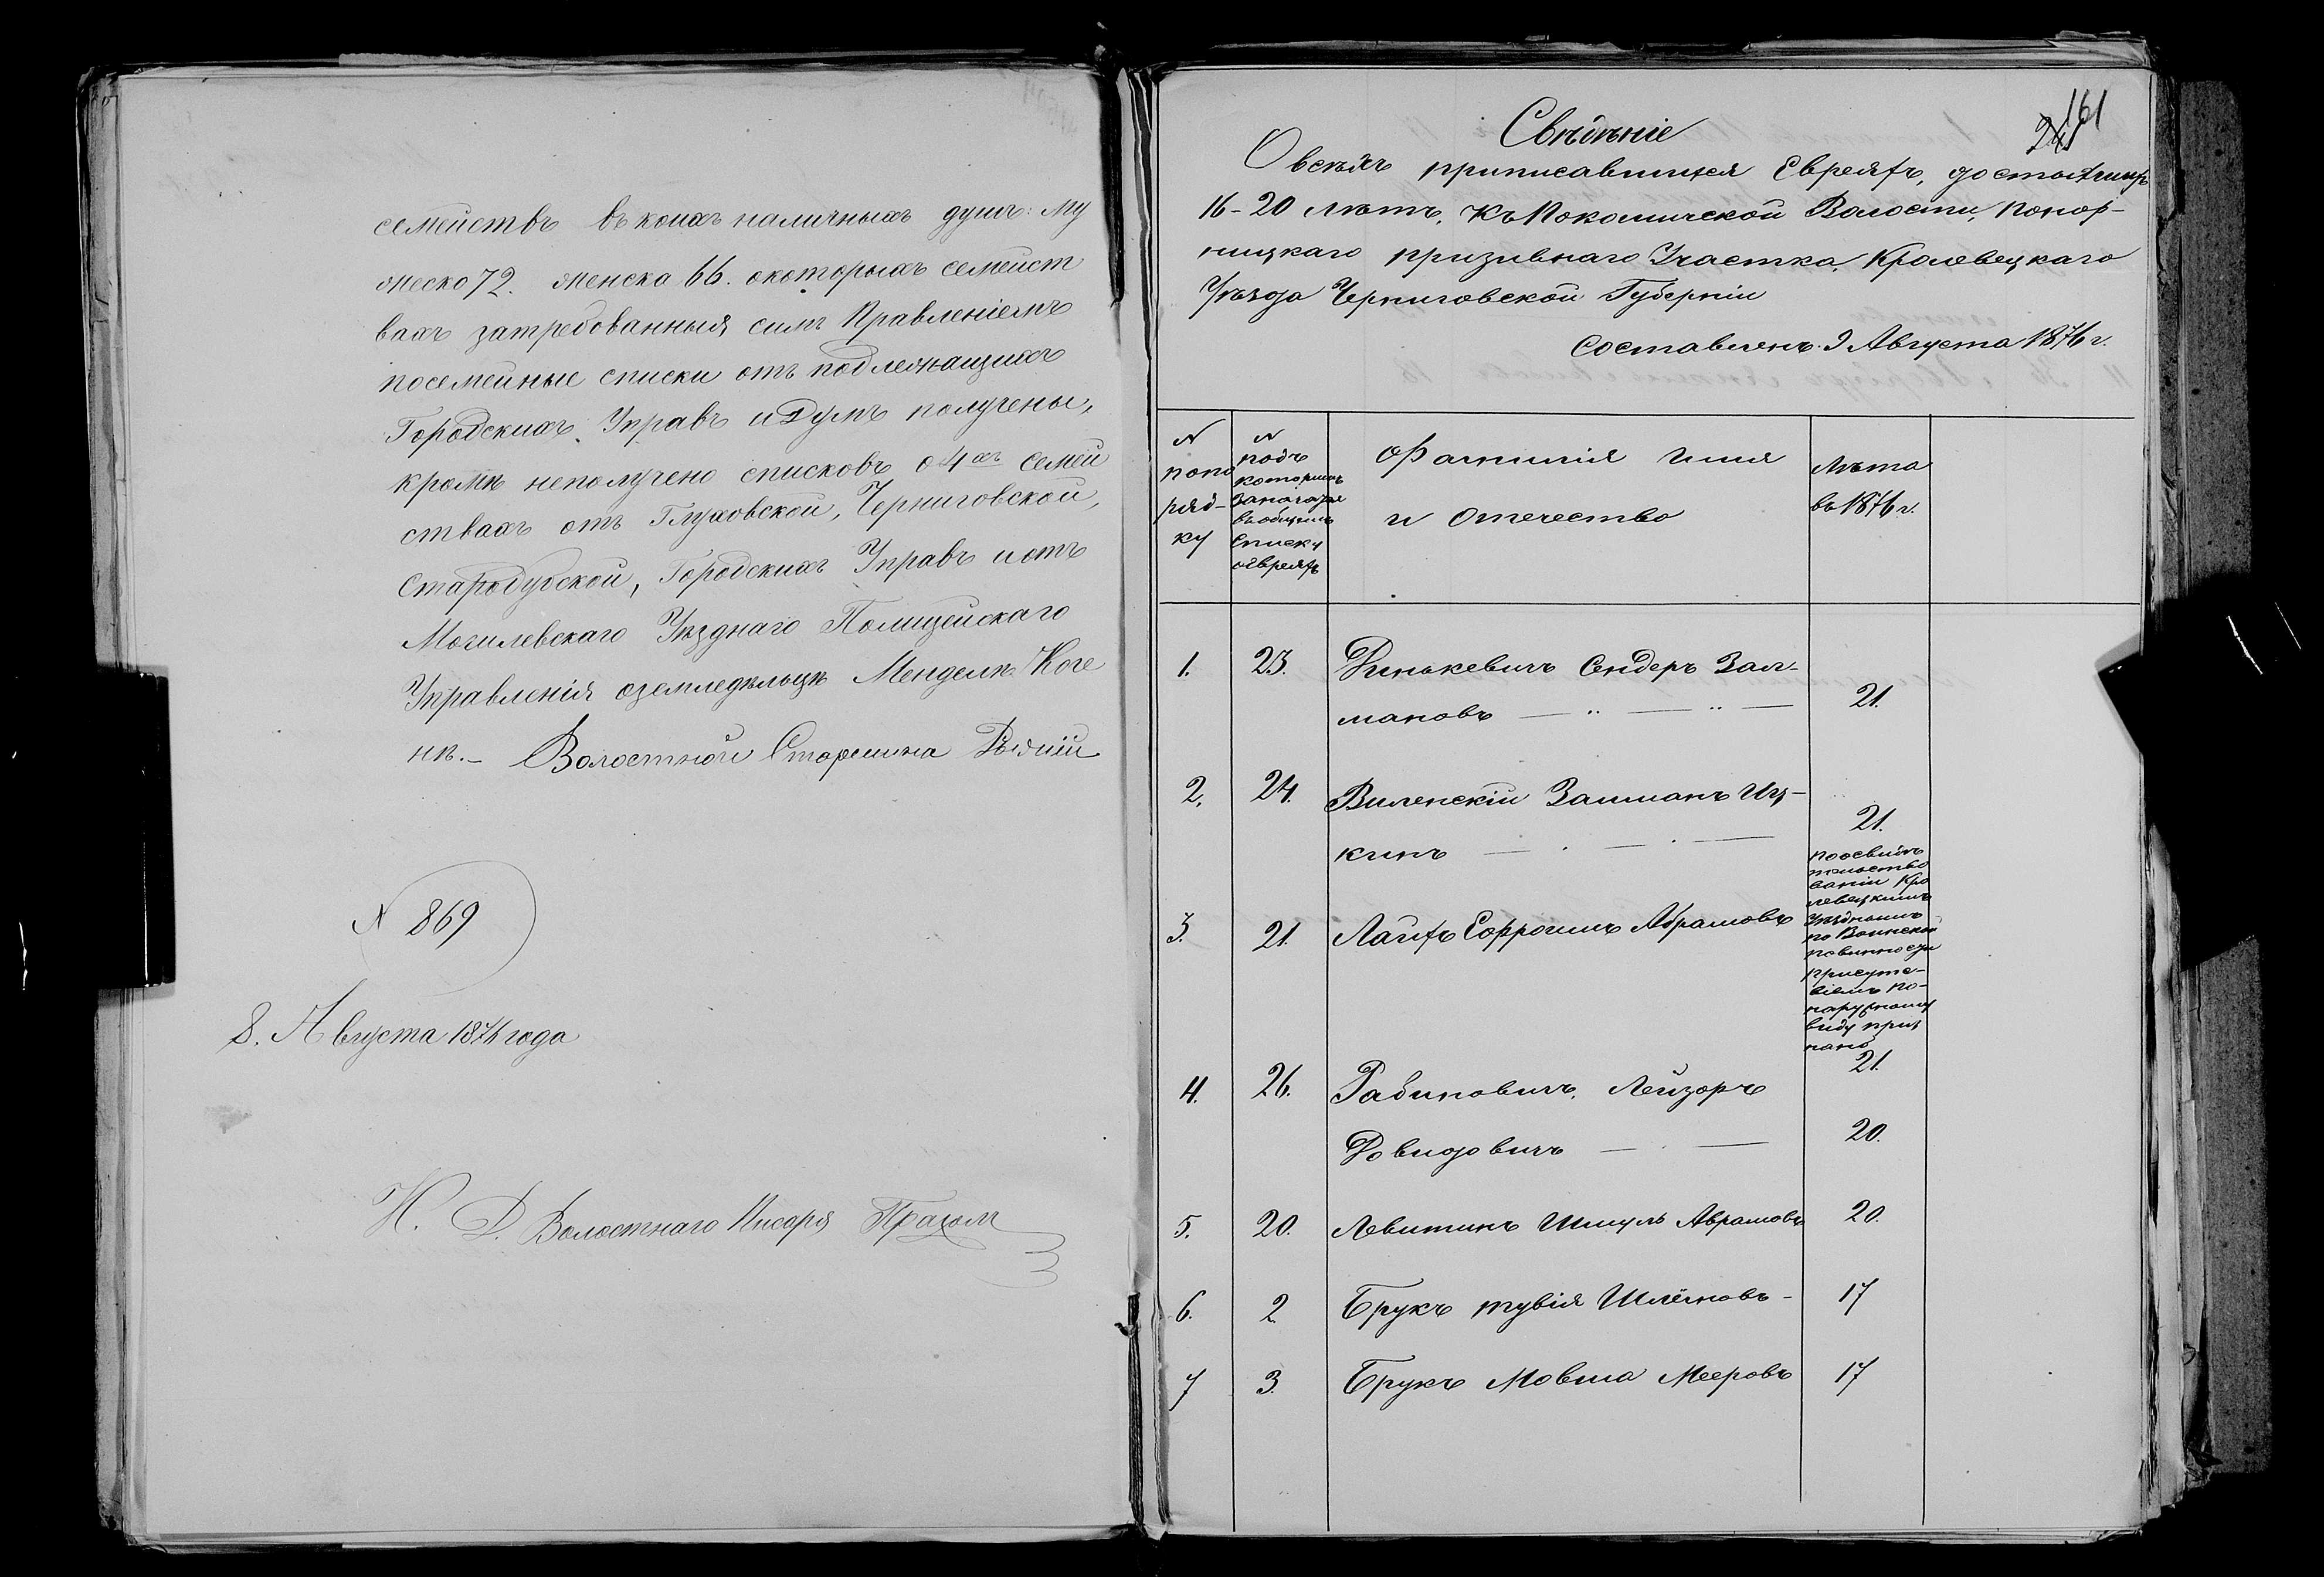 семействъ въ коихъ наличныхъ душъ: му
жеско 72. женска 66. окоторыхъ семейст
вахъ затребованныя симъ Правленіемъ
посемейные списки отъ подлежащихъ
Городскихъ Управъ и Думъ получены,
кромѣ неполучено списковъ о 4хъ семей
ствахъ отъ Глуховской, Черниговской,
Стародубской, Городскихъ Управъ и отъ
Могилевскаго Уѣзднаго Полицейскаго
Управленія оземледѣльцѣ Менделѣ Коге
нѣ. – Волостной Старшина
N 869
8. Августа 1876 года
И. Д. Волостнаго Писаря
161
241
Свѣдѣніе
О всѣхъ приписавшихся Евреяхъ, достигшихъ
16-20 лѣтъ, къ Покошичской Волости, Понор-
ницкаго призывнаго Участка, Кролевецкаго
Уѣзда Черниговской Губерніи
Составленъ 9 Августа 1876 г.
N попо ряд- ку
N подъ которымъ значатся въ общемъ Списку о Евреяхъ
Фамилія имя и Отечество
Лѣта въ 1876 г.
1. 23. Динькевичъ Сендеръ Зал-
мановъ — " — " — 21.
2. 24. Виленскій Залманъ Иц-
кинъ — . — . — 21.
3. 21. Лайхъ Абрамовъ
по освидѣ
тельство
ваніи Кро
левецкимъ
Уѣзднымъ
по Воинской
повинности
Присутс-
віемъ по-
наружному
виду приз
нано
21.
4. 26. Рабиновичъ, Лейзоръ
Довидовичъ — . — 20.
5. 20. Левитинъ Шмуль Абрамовъ 20.
6. 2. Брукъ тувія Шлёмовъ - 17
7 3. Брукъ Мовша Мееровъ 17